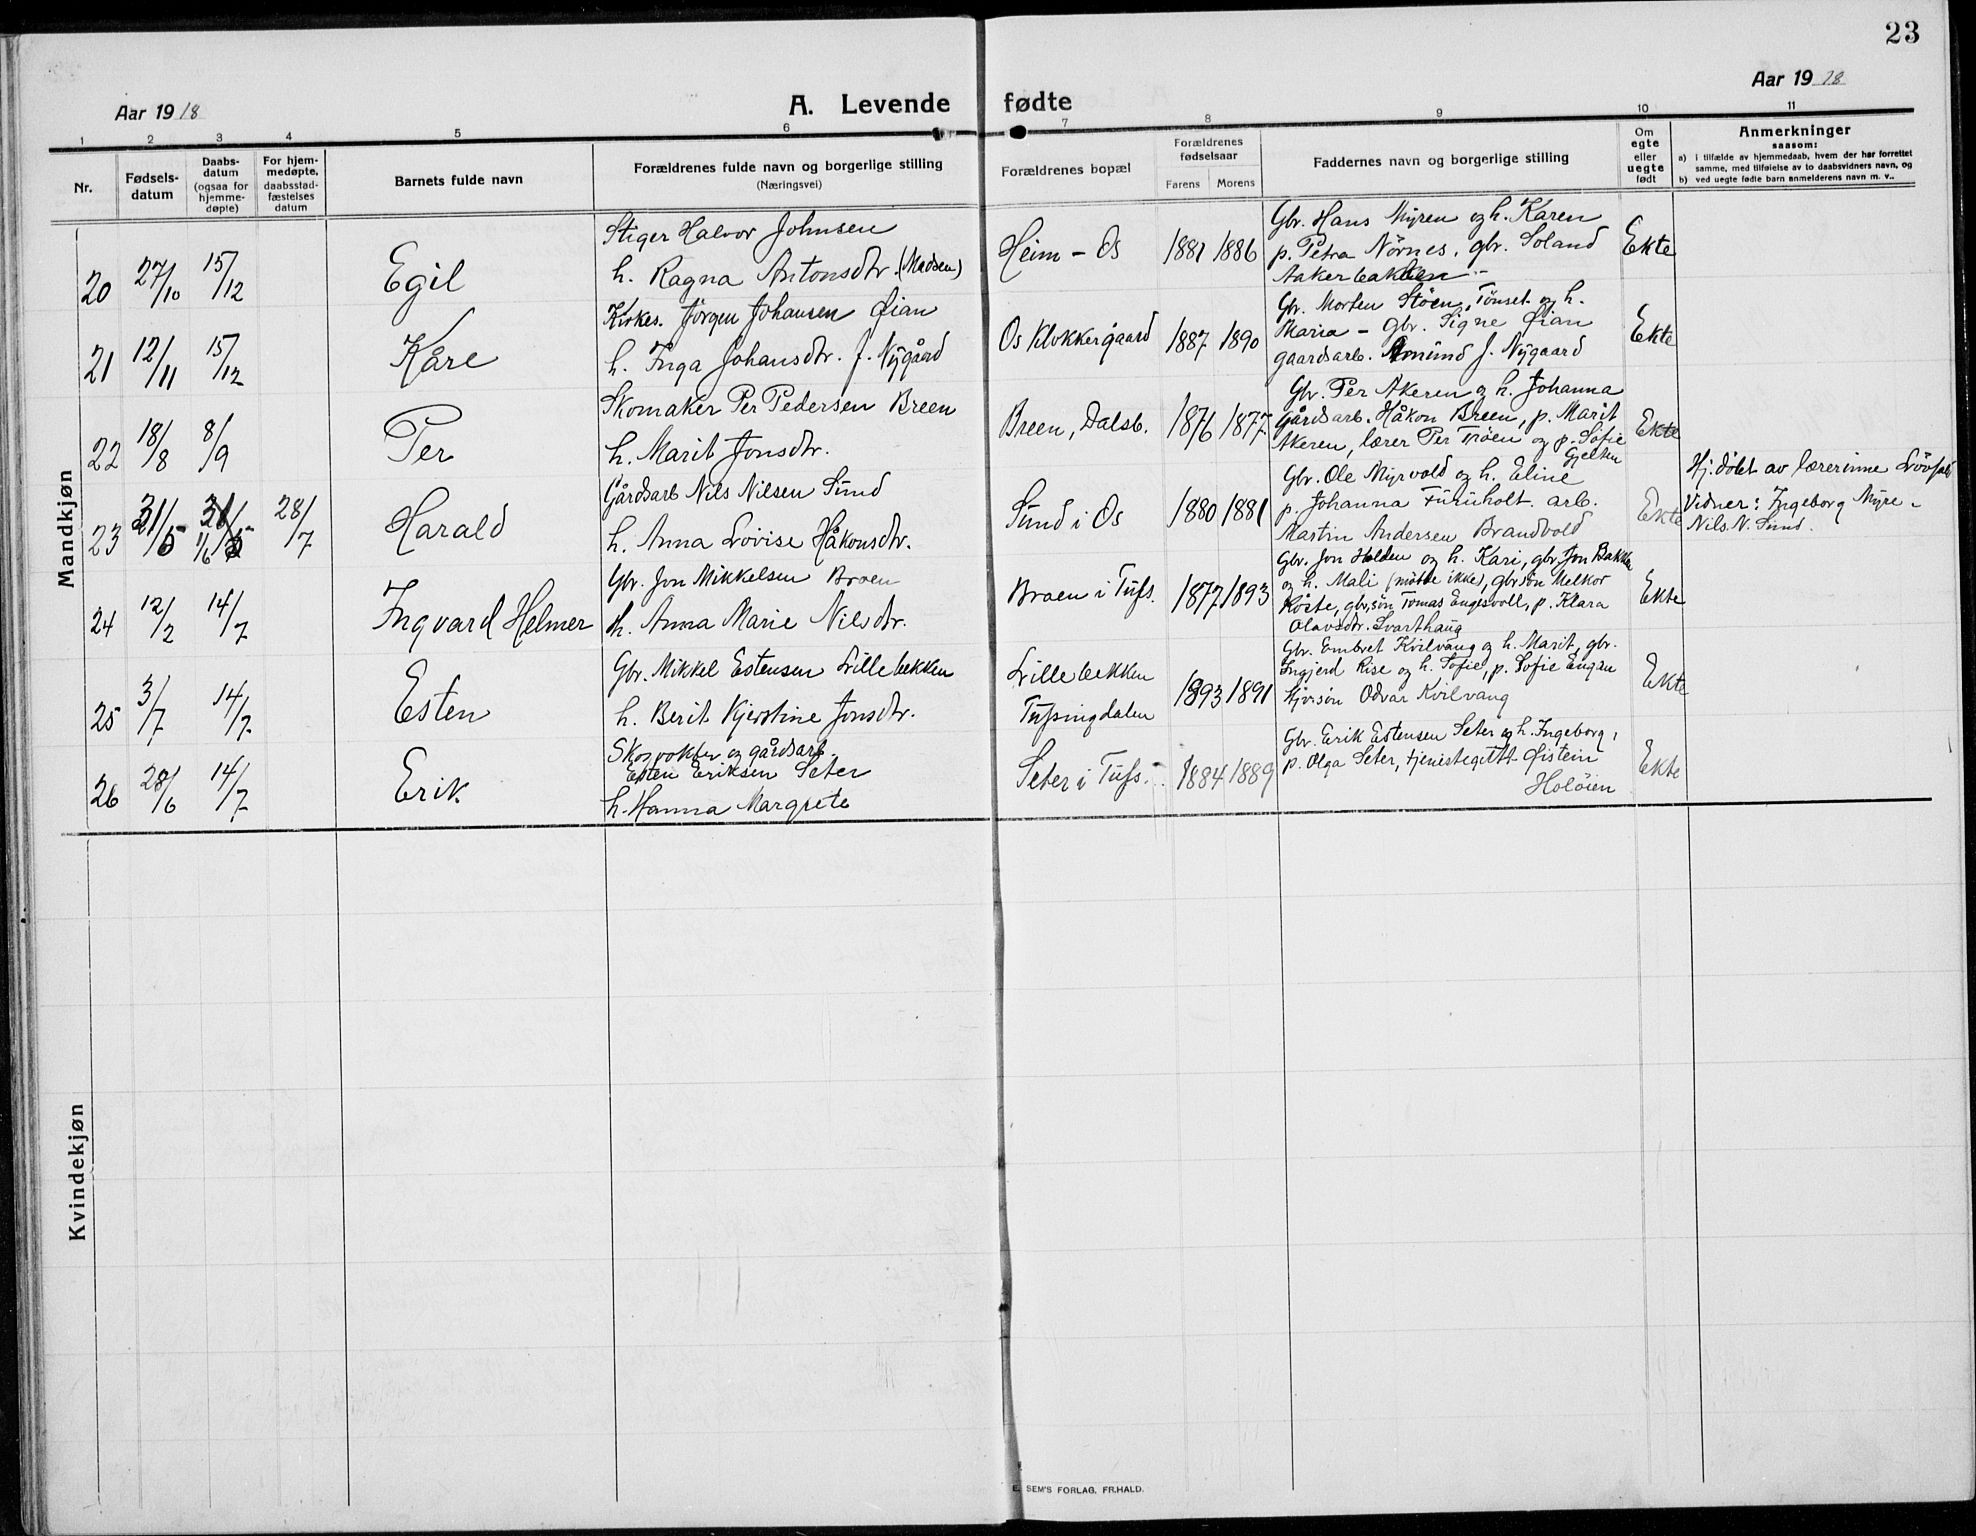 23
Aar 1918
A. Levende fødte
Aar 1918
1 2 3 4 5 6 7 8 9 10 11
Nr.
Fødsels-
datum
Daabs-
datum
(ogsaa for
hjemme-
døpte)
For hjem-
medøpte,
daabsstad-
fæstelses
datum
Barnets fulde navn
Forældrenes fulde navn og borgerlige stilling
(Næringsvei)
Forældrenes bopæl
Forældrenes
fødselsaar
Farens Morens
Faddernes navn og borgerlige stilling
Om
egte
eller
uegte
født
Anmerkninger
saasom:
a) i tilfælde av hjemmedaab, hvem der har forrettet
samme, med tilføielse av to daabsvidners navn, og
b) ved uegte fødte barn anmelderens navn m. v..
Mandkjøn
20 27/10 15/12 Egil
Stiger Halvor Johnsen
h. Ragna Antonsdtr. (Madsen)
Heim - Os 1881 1886
Gbr. Hans Myren og h. Karen
p. Petra Nörnes, gbr. Soland
Aakerbakken -
Ekte
21 12/11 15/12 Kåre
Kirkes. Jörgen Johansen Øian
h. Inga Johansdtr. f. Nygård
Os Klokkergaard 1887 1890
Gbr. Morten Stöen, Tönset og h.
Maria - Gbr. Signe Øian
gaardsarb. Amund J. Nygaard
Ekte
22 18/8 8/9 Per
Skomaker Per Pedersen Breen
h. Marit Jonsdtr.
Breen, Dalsb. 1876 1877
Gbr. Per Akeren og h. Johanna
Gårdsarb. Håkon Breen, p. Marit
Akeren, lærer Per Trøen og p. Sofie
Gjelten
Ekte
23 31/5 1/6 28/7 Harald
Gårdsarb Nils Nilsen Sund
h. Anna Lovise Håkonsdtr.
Sund i Os 1880 1881
Gbr. Ole Myrvold og h. Eline
p. Johanna Furuholt. arb.
Martin Andersen Brandvold
Ekte
Hj. döbt av lærerinne
Vidner: Ingeborg Myre -
Nils N. Sund.
24 12/2 14/7 Ingvard Helmer
Gbr. Jon Mikkelsen Broen
h. Anna Marie Nilsdtr.
Broen i Tufs. 1877 1893
Gbr. Jon Holden og h. Kari, gbr. Jon Bakken
og h. Mali (møtte ikke), gbrsön Melkor
Röste, gbr,søn Tomas Engesvoll, p. Klara
Olavsdtr. Svarthaug
Ekte
25 3/7 14/7 Esten
Gbr. Mikkel Estensen Lillebekken
h. Berit Kjerstine Jonsdtr.
Lillebekken
Tufsingdalen
1893 1891
Gbr. Embret Kvilvang og h. Marit, gbr.
Ingjerd Rise og h. Sofie, p. Sofie Engan
Odvar Kvilvang
Ekte
26 28/6 14/7 Erik
Skogvokter og gårdsarb.
Esten Eriksen Seter
h. Hanna Margrete
Seter i Tufs. 1884 1889
Gbr. Erik Estensen Seter og h. Ingeborg,
p. Olga Seter, tjenestegutt Øistein
Holöien
Ekte
Kvindekjøn
E. SEM'S FORLAG, FR.HALD.